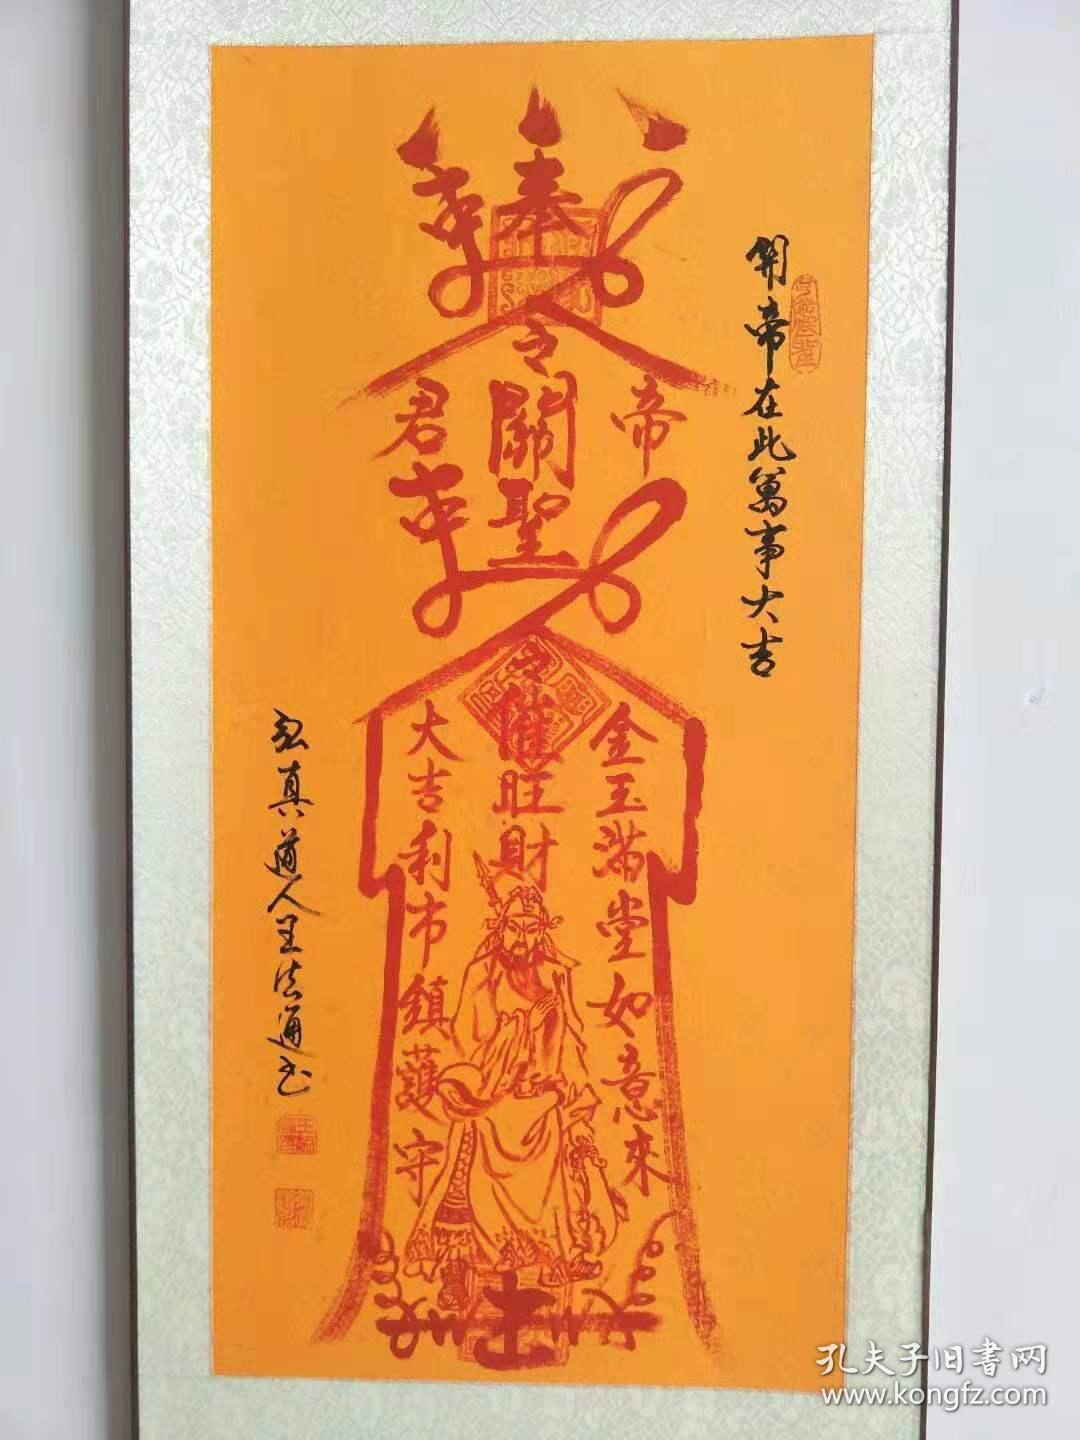 開帝在此萬事大吉
奉
令
帝
關聖
君
令催旺財
金玉滿堂如意來
大吉利市鎮護守
弘真道人王法通書
孔夫子旧書网
www.kongfz.com